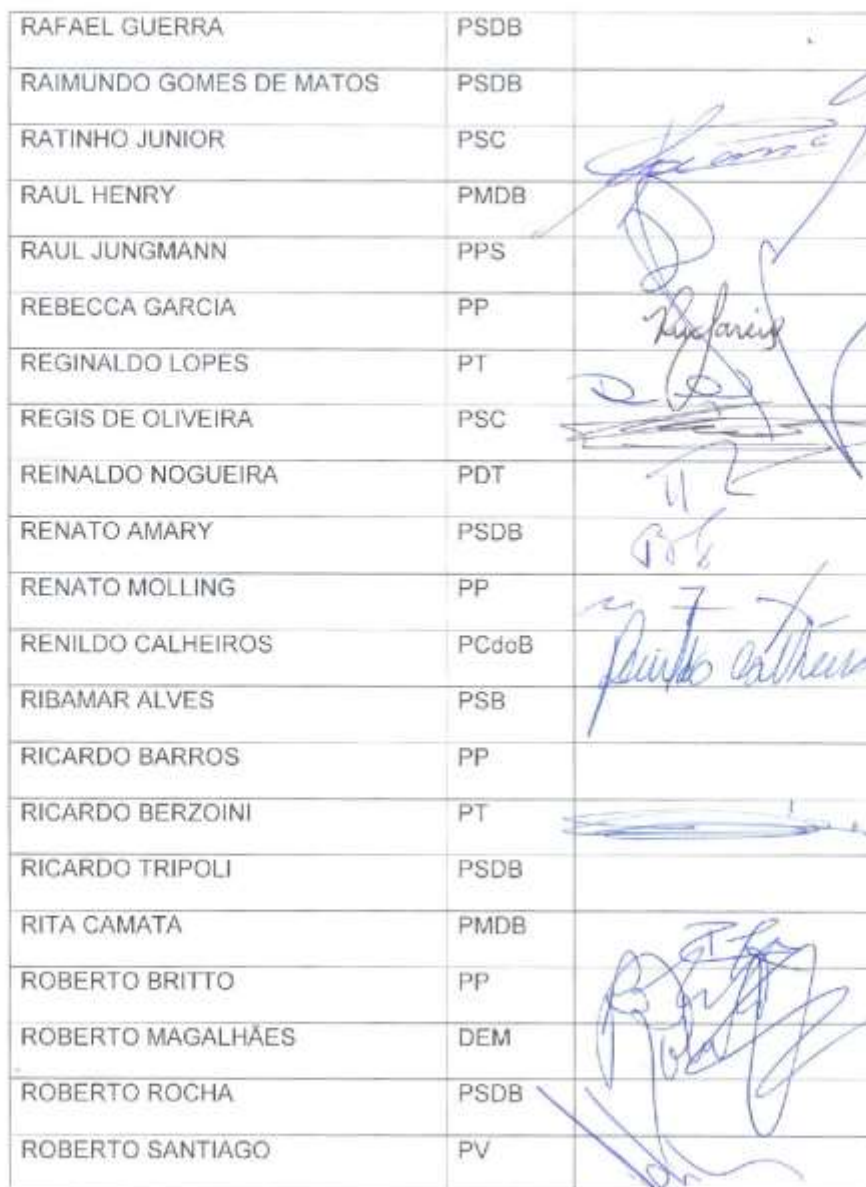 RAFAEL GUERRA PSDB
RAIMUNDO GOMES DE MATOS PSDB
RATINHO JUNIOR PSC
RAUL HENRY PMDB
RAUL JUNGMANN PPS
REBECCA GARCIA PP
REGINALDO LOPES PT
REGIS DE OLIVEIRA PSC
REINALDO NOGUEIRA PDT
RENATO AMARY PSDB
RENATO MOLLING PP
RENILDO CALHEIROS PCdoB
RIBAMAR ALVES PSB
RICARDO BARROS PP
RICARDO BERZOINI PT
RICARDO TRIPOLI PSDB
RITA CAMATA PMDB
ROBERTO BRITTO PP
ROBERTO MAGALHÃES DEM
ROBERTO ROCHA PSDB
ROBERTO SANTIAGO PV